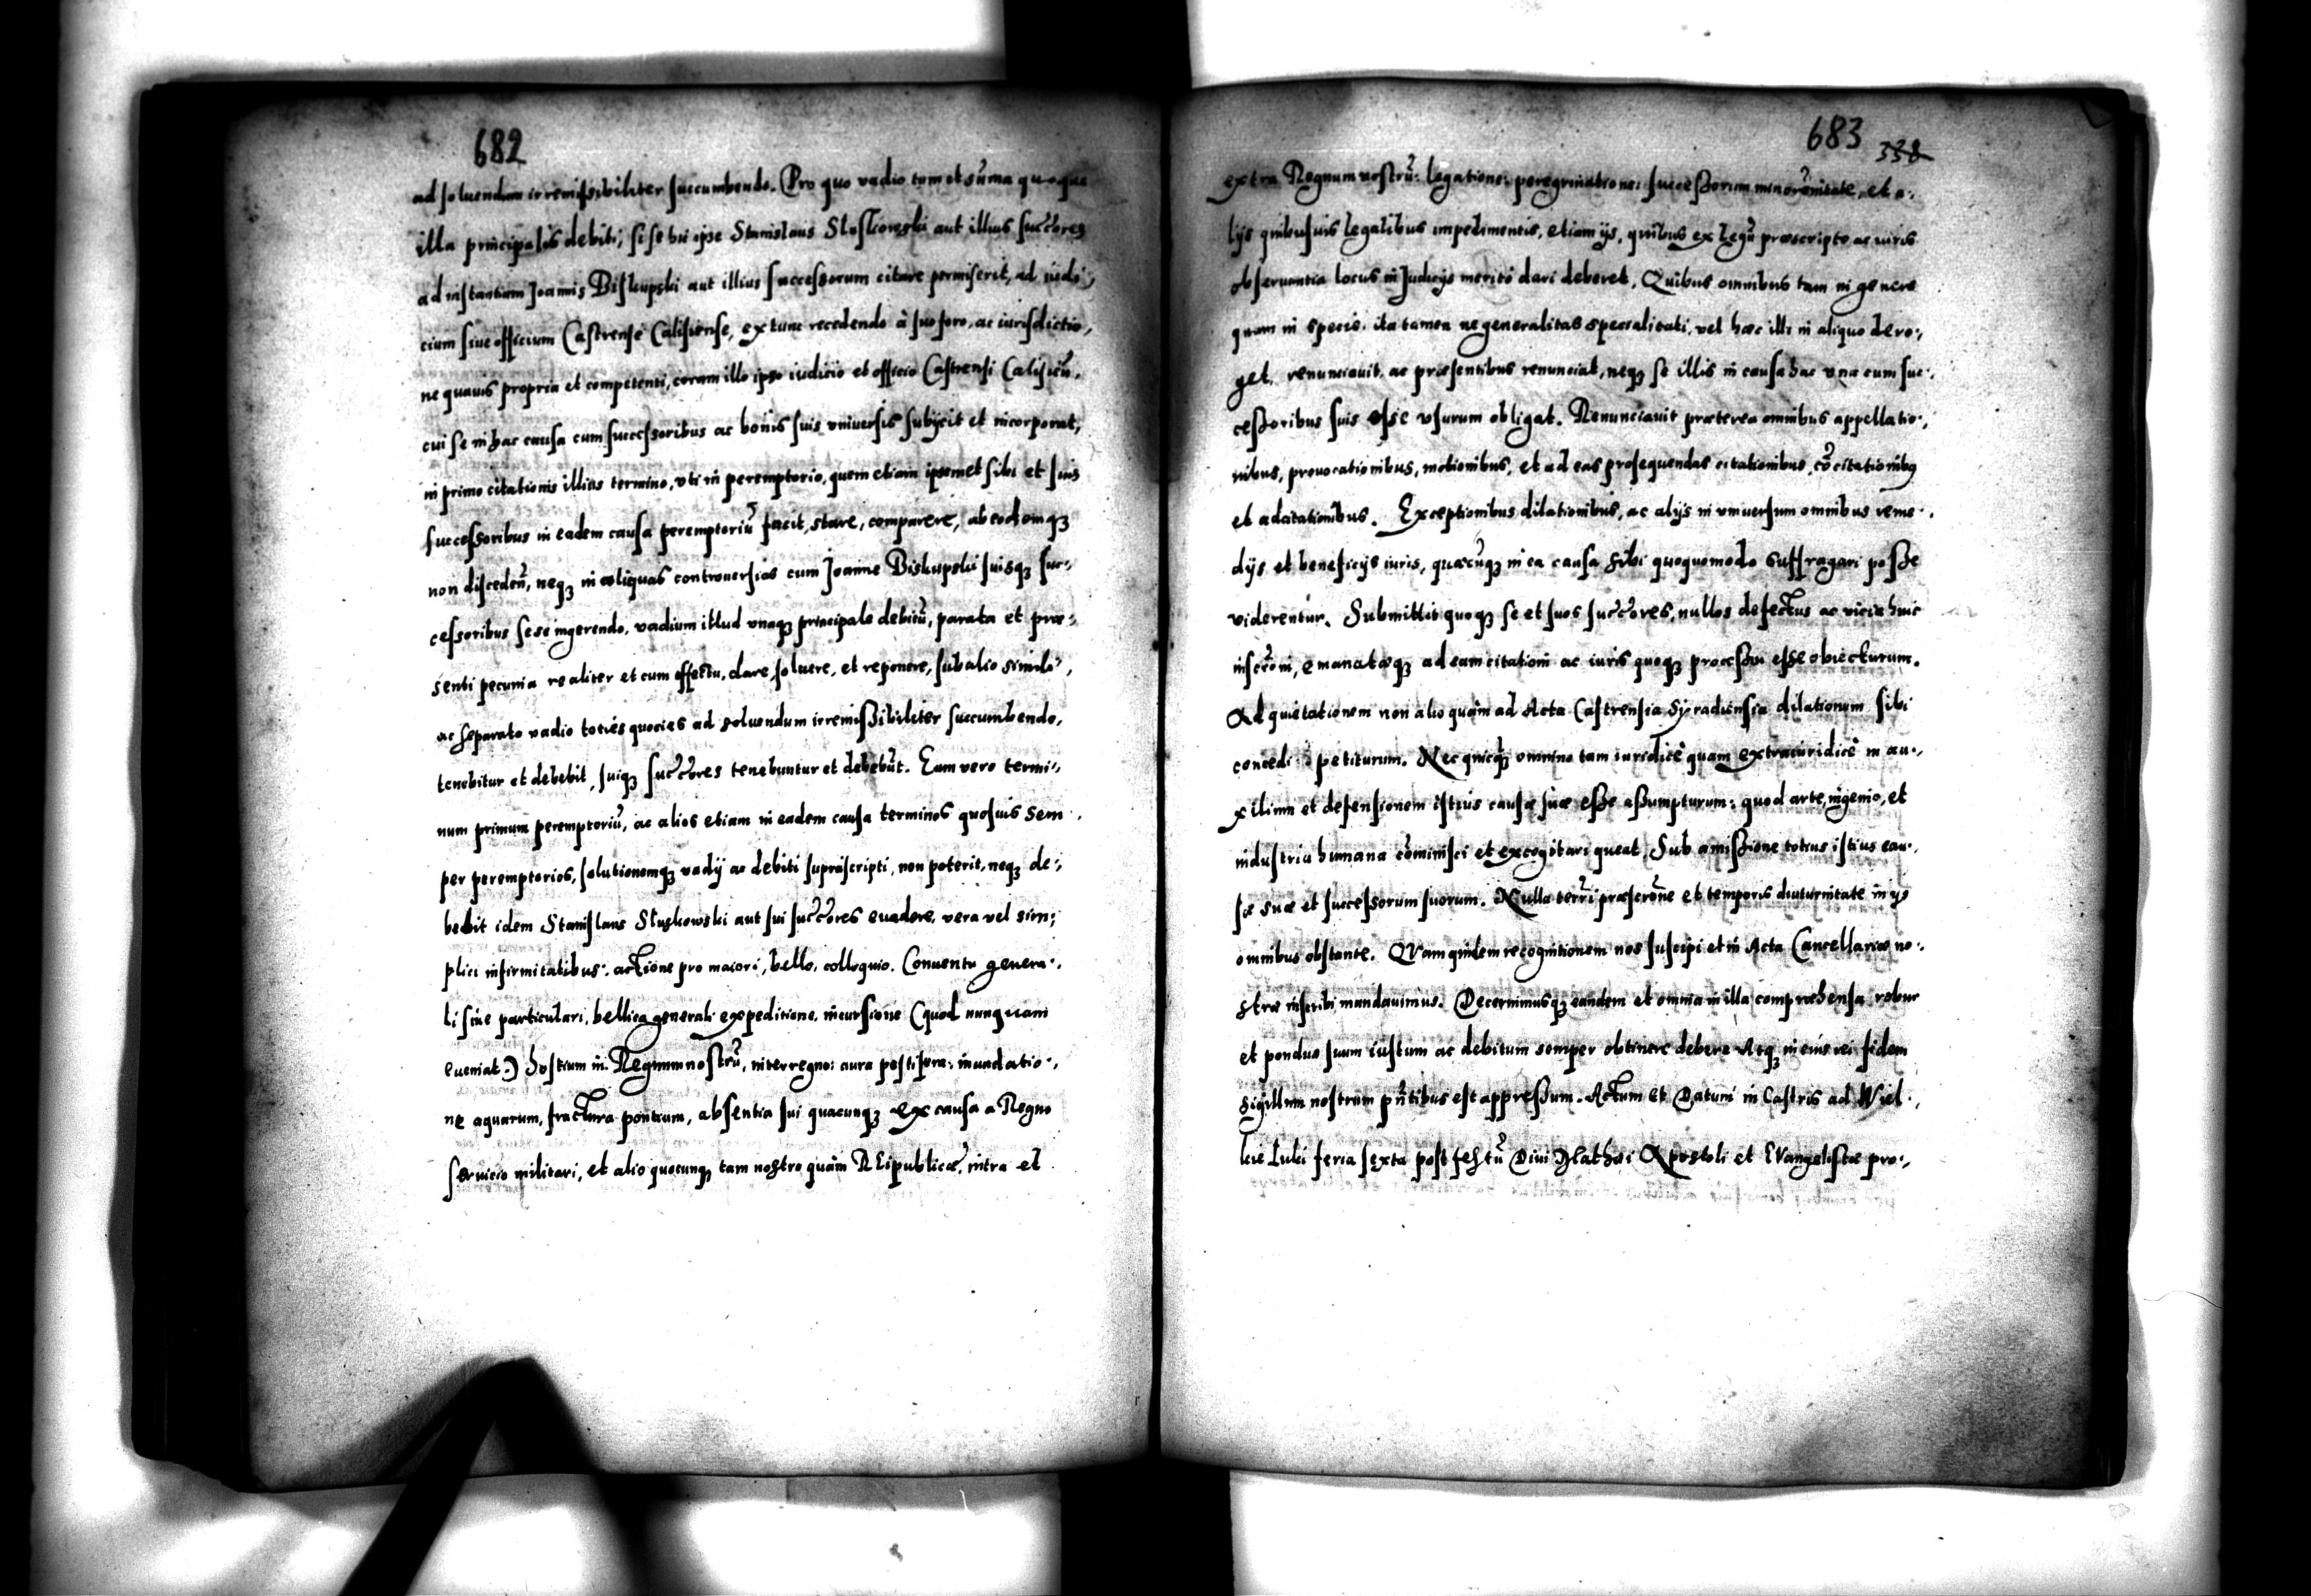 682
ad soluendum irremissibiliter succumbendo. Pro quo vadio tum et sum̃a quoque
illa principalis debiti, si se hic ipse Stanislaus Sluskowski aut illius succ̃ores
ad instantiam Joannis Biskupski aut illius successorum citare permiserit, ad iudi,
cium siue officium Castrense Calisiense, ex tunc recedendo à suo foro, ac iurisdictio,
ne quauis propria et competenti, coram illo ipso iudicio et officio Castrensi Calisieñ.
cui se in hac causa cum successoribus ac bonis suis vniuersis subijcit et incorporat,
in primo citationis illius termino, vti in peremptorio, quem etiam ipsemet sibi et suis
successoribus in eadem causa peremptoriũ facit, stare, comparere, ab eodemqȝ
non disceden̄, neqȝ in aliquas controuersias cum Joanne Biskupski suisqȝ suc,
cessoribus sese ingerendo. vadium illud vnaqȝ principale debitũ, parata et præ,
senti pecunia realiter et cum effectu, dare, soluere, et reponere, sub alio simili,
ac separato vadio toties quoties ad soluendum irremißibiliter succumbendo,
tenebitur et debebit, suiqȝ succ̃ores tenebuntur et debebũt. Eum vero termi,
num primum peremptoriũ, ac alios etiam in eadem causa terminos quosuis sem,
per peremptorios, solutionemqȝ vadij ac debiti suprascripti, non poterit, neqȝ de,
bebit idem Stanislaus Sluskowski aut sui succ̃ores euadere, vera vel sim,
plici infirmitatibus. actione pro maiori, bello, colloquio. Conuentu genera,
li siue particulari, bellica generali expeditione, incursione (quod nunquam
eueniat.) hostium in Regnum nostrũ, interregno: aura pestifera: inundatio,
ne aquarum, fractura pontium, absentia sui quacunqȝ ex causa a Regno
seruicio militari, et alio quocunqȝ tam nostro quàm REipublicæ, intra et
683 338
extra Regnum nostrũ: legatione: peregrinatione: successorum minoreñitate, et a,
lijs quibusuis legalibus impedimentis, etiam ijs, quibus ex legũ præscripto ac iuris
obseruantia locus in Judicijs meritò dari deberet. Quibus omnibus tam in genere
quam in specie. ita tamen ne generalitas specialitati, vel hæc illi in aliquo dero,
get. renunciauit. ac præsentibus renunciat, neqȝ se illis in causa hac vna cum suc,
ceßoribus suis esse vsurum obligat. Renunciauit præterea omnibus appellatio,
nibus, prouocationibus, motionibus, et ad eas prosequendas citationibus, cõcitationibȝ
et adcitationibus. Exceptionibus dilationibus, ac alijs in vniuersum omnibus reme,
dijs et beneficijs iuris, quæcũqȝ in ea causa sibi quoquomodo suffragari poße
viderentur. Submittit quoqȝ se et suos succ̃ores, nullos defectus ac vicia huic
inscr̃oni, emanatæqȝ ad eam citationi ac iuris quoqȝ processui eße obiecturum.
Ad quietationem non alio quàm ad Acta Castrensia Syradiensia dilationem sibi
concedi petiturum. Nec quicqȝ omnino tam iuridicè quam extraiuridicè in au,
xilium et defensionem istius causæ suæ eße aßumpturum: quod arte, ingenio, et
industria humana cõminisci et excogitari queat. Sub amißione totius istius cau,
sæ suæ et successorum suorum. Nulla ter̃ri præscr̃one et temporis diuturnitate in ijs
omnibus obstante. QVam quidem recognitionem nos suscipi et in Acta Cancellariæ no,
stræ inscribi mandauimus. Decernimusqȝ eandem et omnia in illa comprehensa robur
et pondus suum iustum ac debitum semper obtinere debere Atqȝ in eius rei fidem
sigillum nostrum pñtibus est appreßum. Actum et Datum in Castris ad Wiel,
kie Luki feria sexta post festũ Diui Mathæi Apostoli et EVangelistæ pro,